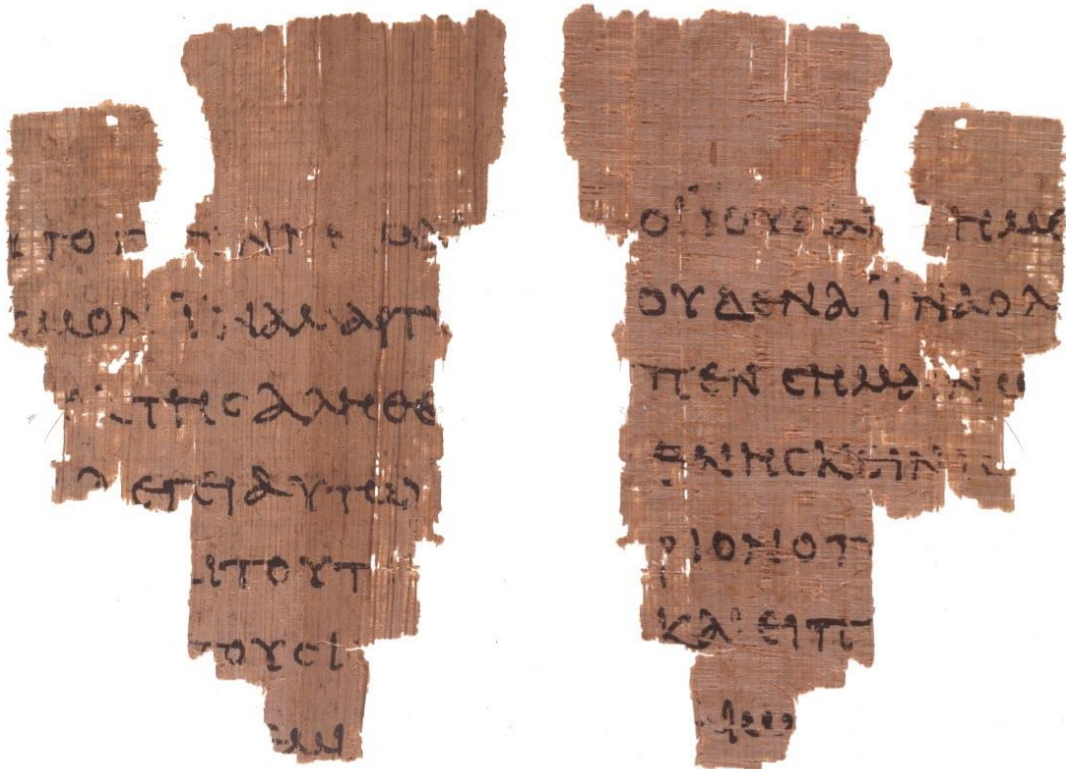 ΤΟ Γ ΓΕΝΝΗΜΑΙ
CΜΟΝ ΪΝΑ ΜΑΡΤΥ
ΕΚ ΤΗC ΑΛΗΘΕ
ΛΕΓΕΙ ΑΥΤΩ
ΑΙ ΤΟΥΤ
ΤΟΥC Ι
ΕΜΙ
ΟΪ ΪΟΥΔΑΙ ΗΜΕ
ΟΥΔΕΝΑ ΪΝΑ Ο Λ
ΠΕΝ CΗΜΑΙΝΩ
ΘΝΗCΚΕΙΝ ΙC
ΡΙΟΝ Ο Π
ΚΑΙ ΕΙΠ
ΑΙΩ